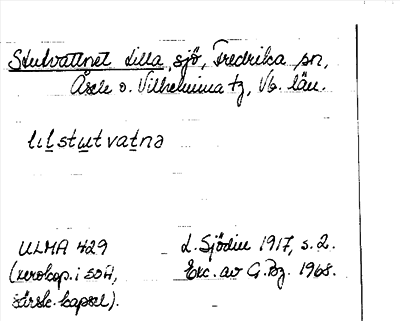 Stutvattnet lilla, sjö, Fredrika sn,
Åsele o. Vilhelmina tg, Vb. län.
lılstutvatnə
ULMA 429
(xerokop. i SOA,
särsk. kapsel).
L. Sjödin 1917, s. 2.
Exc. av G. Bg. 1968.